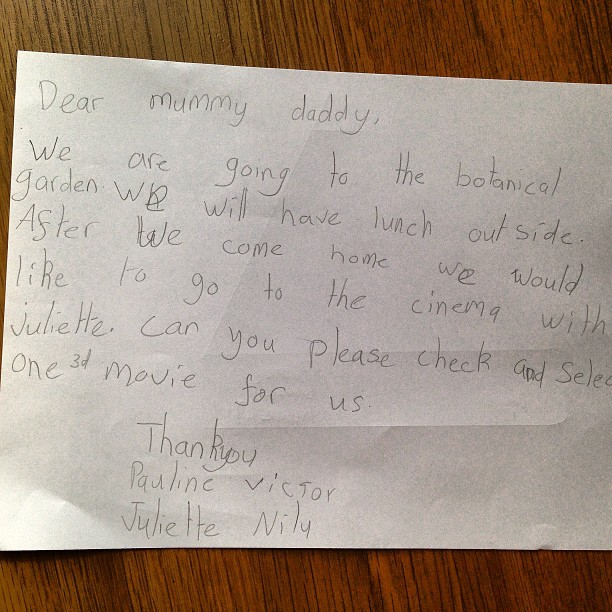 Dear mummy daddy,
We are going to the botanical
garden. We will have lunch outside.
After we come home we would
like to go to the cinema with
juliette. can you please check and selec
one 3d movie for us.
Thankyou
Pauline victor
Juliette Nilu